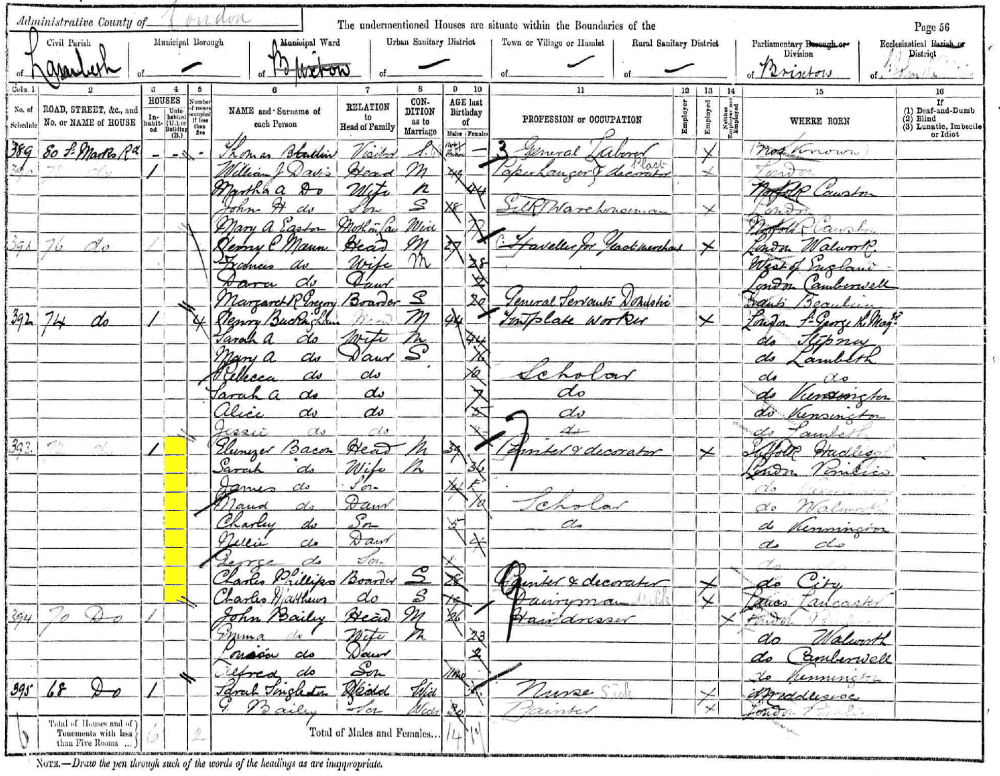 Administrative County of London The undermentioned Houses are situate within the Boundaries of the Page 56
Civil Parish Municipal Borough Municipal Ward Urban Sanitary District Town or Village or Hamlet Rural Sanitary District Parliamentary Borough or Division Ecclesiastical Parish or District
of Lambeth of — of Brixton of — of — of — of Brixton of
Cols. 1 2 3 4 5 6 7 8 9 10 11 12 13 14 15 16
No. of Schedule ROAD, STREET, &c., and No. or NAME of HOUSE HOUSES Inhabited Uninhabited (U.), or Building (B.) Number of rooms occupied if less than five NAME and Surname of each Person RELATION to Head of Family CONDITION as to Marriage AGE last Birthday of Males Females PROFESSION or OCCUPATION Employer Employed Neither Employer nor Employed WHERE BORN If (1) Deaf-and-Dumb (2) Blind (3) Lunatic, Imbecile or Idiot
389 80 St Marks Rd - - - Thomas Visitor S General Laborer X (Not Known)
1 William J Davis Head M 49 Paperhanger & decorator X London
Martha A Do Wife M 44 Norfolk Cawston
John H do Son S 18 Silk Warehouseman X London
Mary A Easton Moth in Law Wid 77 Norfolk Cawston
391 76 do 1 Henry C Mann Head M 27 Traveller for merchant X London Walworth
Frances do Wife M 28 West of England
do Daur 4 London Camberwell
Margaret R Gregory Boarder S 20 General Servant Domestic Beaulieu
392 74 do 1 4 Henry Head M 44 Tinplate worker X London St George
Sarah A do Wife M 44 do Stepney
Mary A do Daur S 16 do Lambeth
Rebecca do do 10 Scholar do do
Sarah A do do 7 do do Kensington
Alice do do 5 do do Kensington
Jessie do do do do Lambeth
393 1 Ebenezer Bacon Head M 39 Painter & decorator X Suffolk Hadleigh
Sarah do Wife M 36 London Pimlico
James do Son do
Maud do Daur 10 Scholar do Walworth
Charley do Son 5 do do Kennington
Nellie do Daur 4 do do
George do Son do
Charles Phillips Boarder S 28 Painter & decorator X do City
Charles Matthews do S Dairyman X Lancaster
394 70 Do 1 John Bailey Head M 26 Hairdresser X London
Emma do Wife M 23 do Walworth
Louisa do Daur 2 do Camberwell
Alfred do Son do Kennington
395 68 Do 1 Sarah Singleton Wid Nurse Sick X Middlesex
G Bailey Son 30 Painter X London
6 Total of Houses and of Tenements with less than Five Rooms ... 6 2 Total of Males and Females... 14
NOTE.—Draw the pen through such of the words of the headings as are inappropriate.